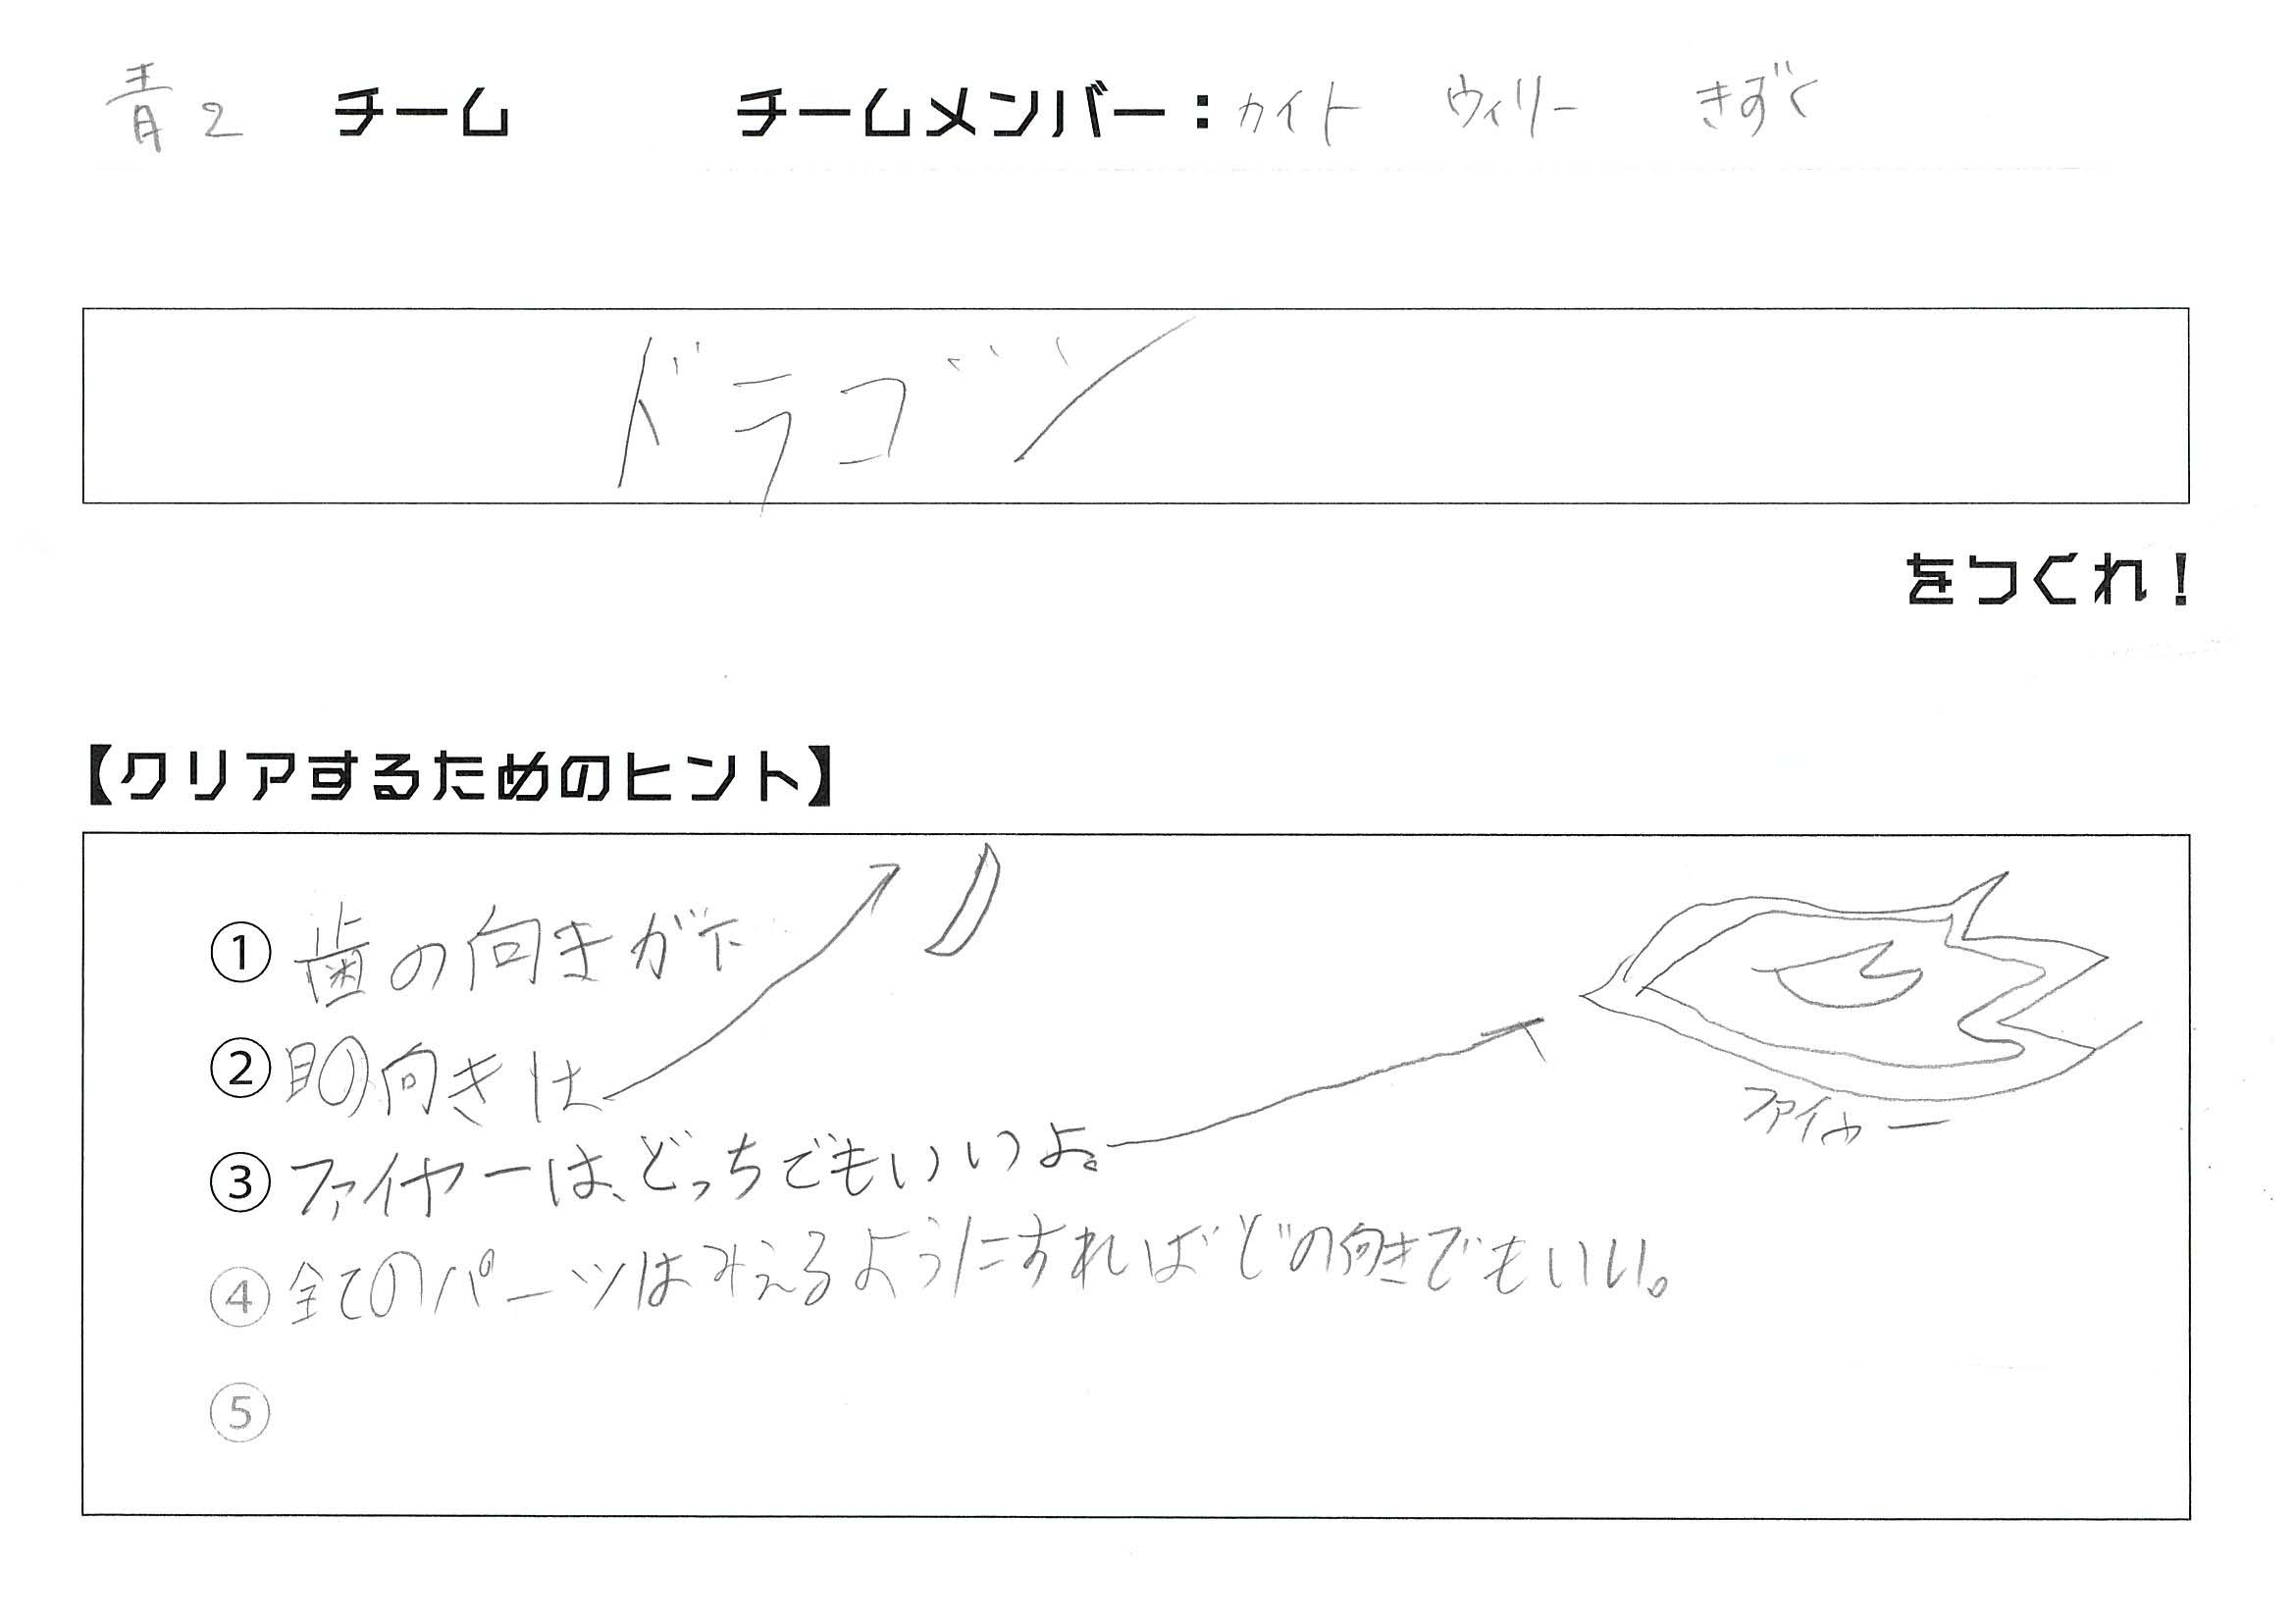 青2 チーム チームメンバー：カイト ウィリー きずく
ドラゴン
をつくれ！
【クリアするためのヒント】
① 歯の向きが下
② 目の向きは
③ ファイヤーは、どっちでもいいよ。
ファイヤー
④ 全てのパーツはみえるようにすればどの向きでもいい。
⑤